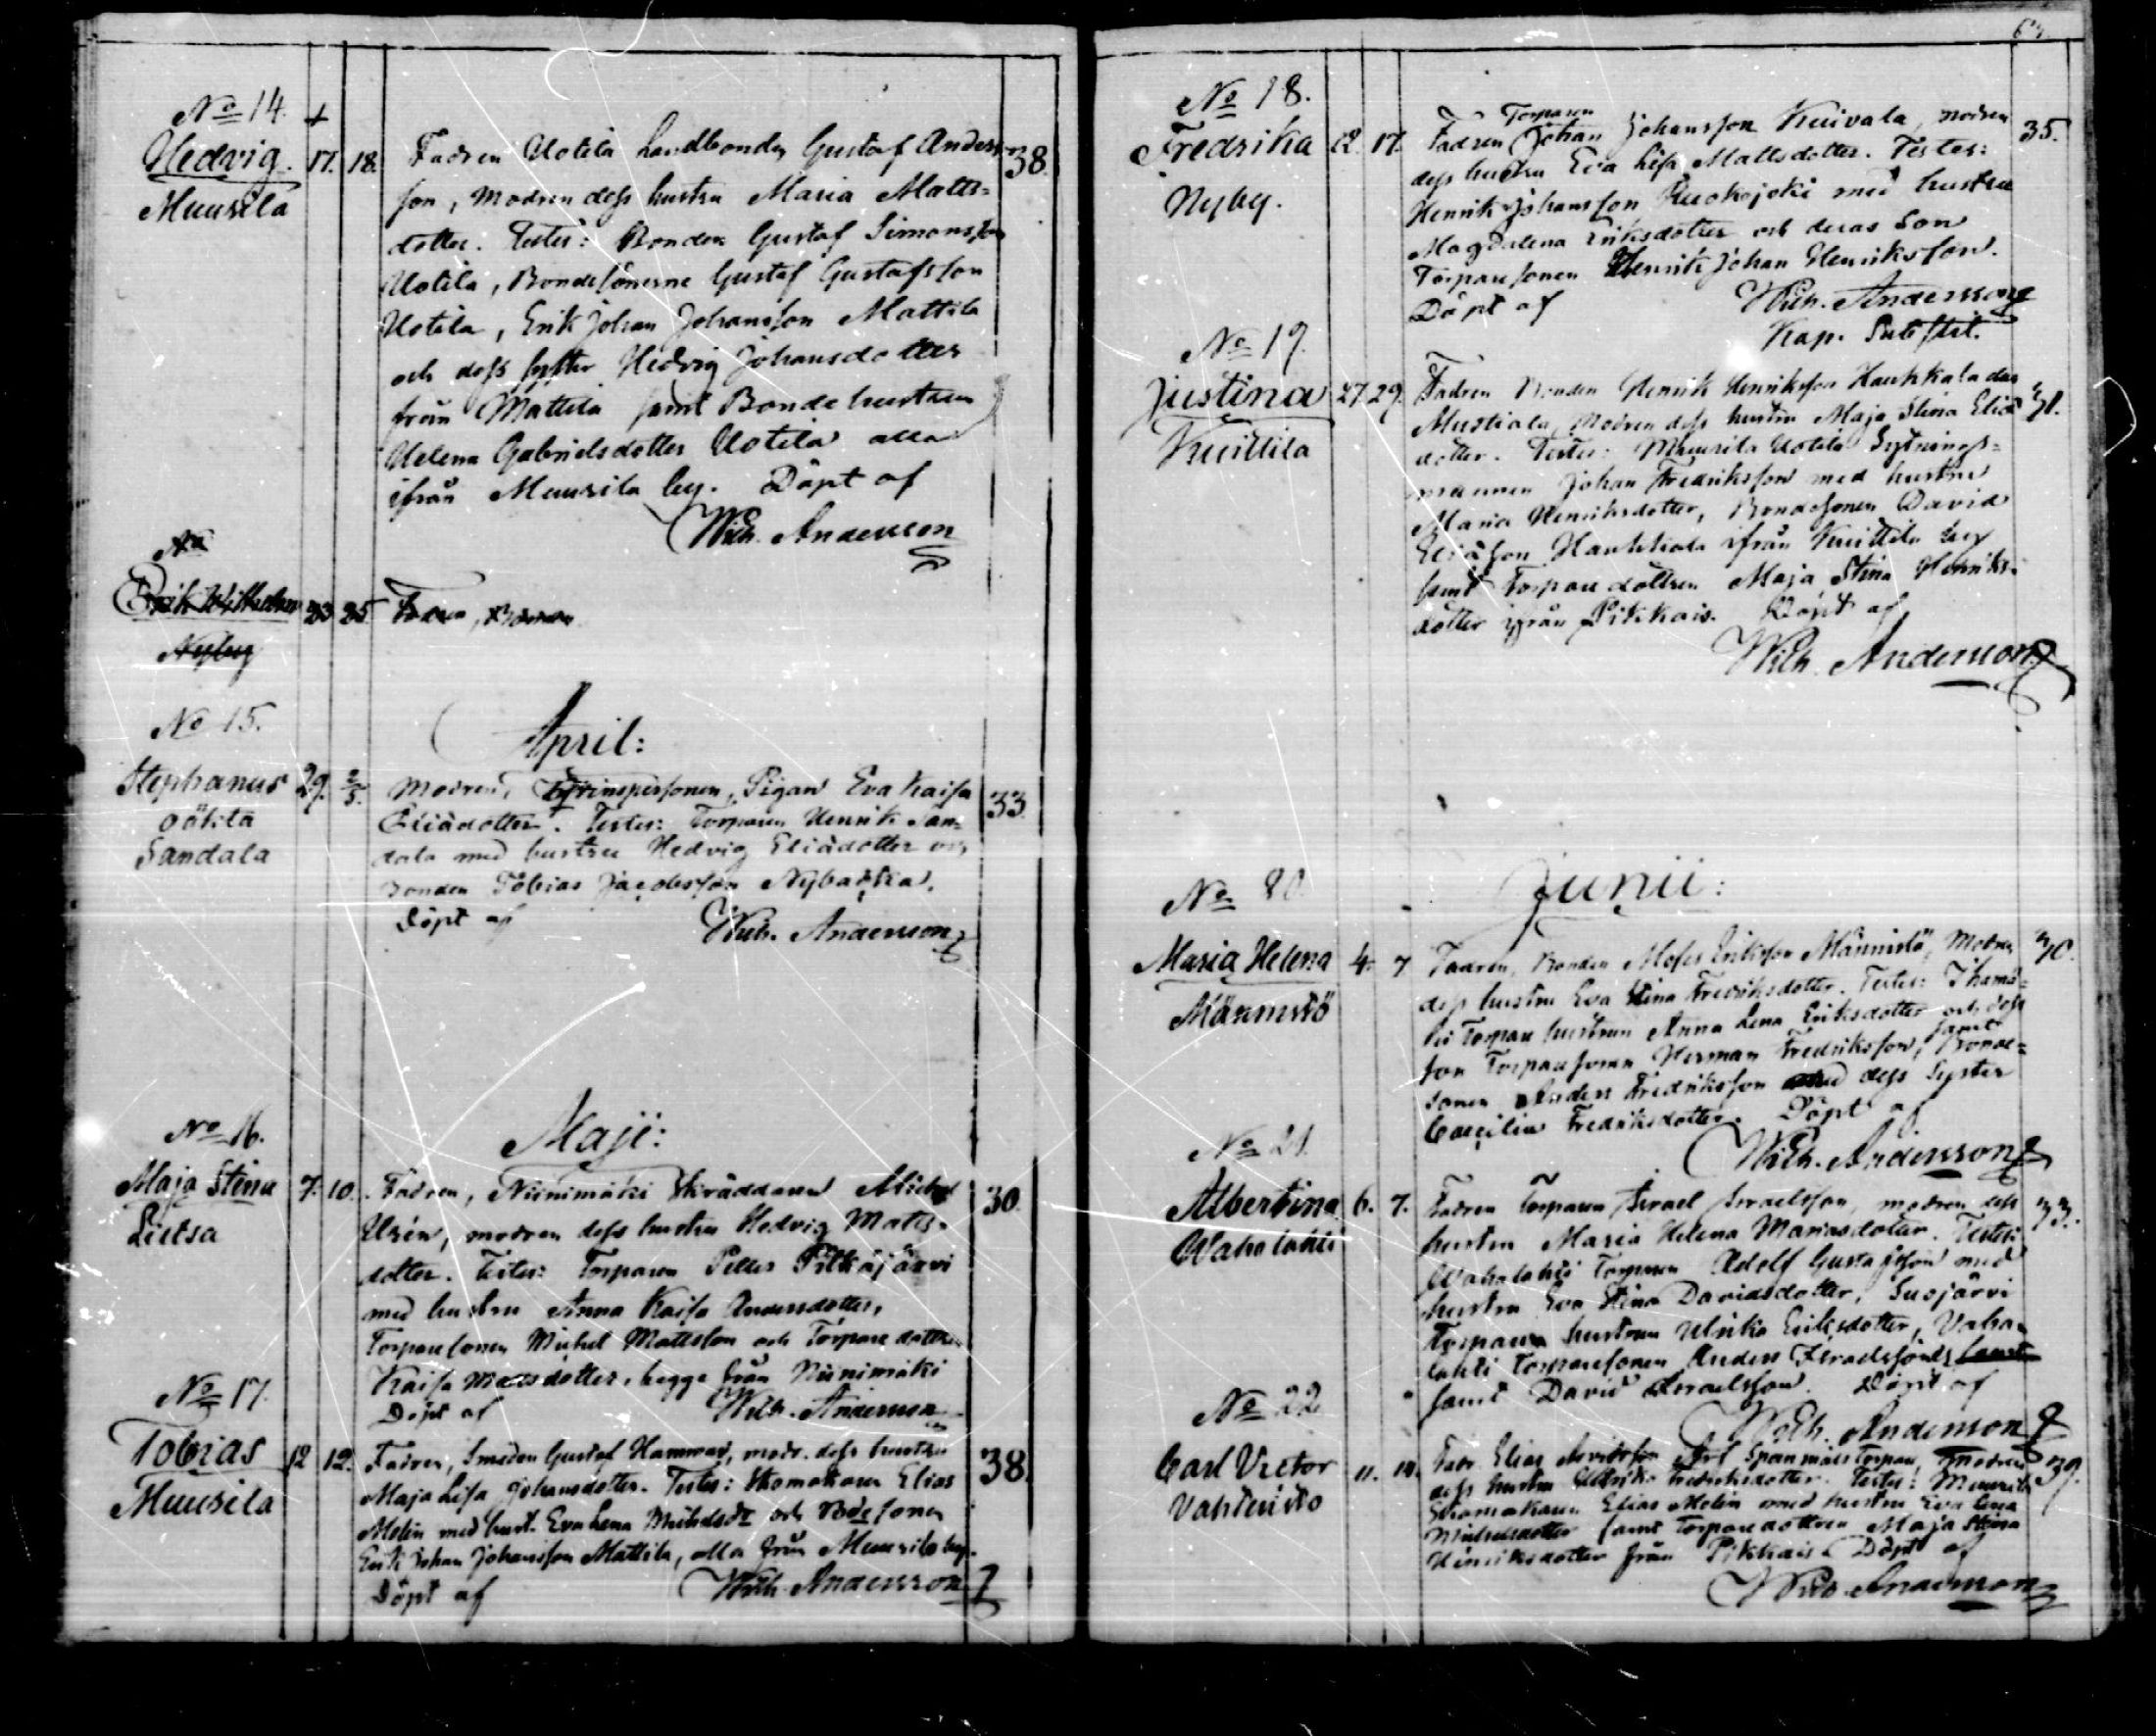 No 14. +
Hedvig. 17. 18. Fadren Uotila Landbonden Gustaf Anders 38.
Muurila son, Modren dess hustru Maria Matts=
dotter. Testes: Bonden Gustaf Simonsson
Uotila, Bondesönerne Gustaf Gustafsson
Uotila, Erik Johan Johansson Mattila
och dess syster Hedvig Johansdotter
från Mattila samt Bondehustrun
Helena Gabrielsdotter Uotila alla
ifrån Muurila by. Döpt af
Wilh. Andersson
No
Erik Wilhelm 23 25 Fadren, Bonden
Nyby
No 15.
April:
Stephanus 29. 2/5. Modren, Pigan Eva Kaisa 33.
oäkta Eliædotter. Testes: Torparen Henrik San=
Sandala dala med hustru Hedvig Eliædotter och
Bonden Tobias Jacobsson Nybacka.
Döpt af Wilh. Andersson
No 16.
Maji:
Maja Stina 7. 10. Fadren, Niinimäki Skräddaren Michel 30.
Lietsa modren dess hustru Hedvig Matts=
dotter. Testes: Torparen Petter Pitkäjärvi
med hustru Anna Kaisa Andersdotter,
Torparesonen Michel Mattsson och Torparedottren
Kaisa Mattsdotter, begge från Niinimäki
Döpt af Wilh. Andersson
No 17.
Tobias 12 12. Fadren, Smeden Gustaf Hammar, modr. dess hustru 38.
Muurila Maja Lisa Johansdotter. Testes: Skomakaren Elias
Melin med hust. Eva Lena Michelsdt och Bdesonen
Erik Johan Johansson Mattila, alla från Muurila by.
Döpt af Wilh. Andersson
No 18.
Torparen
Fredrika 12. 17. Fadren Johan Johansson Kuivala, modren 35.
Nyby. dess hustru Eva Lisa Mattsdotter. Testes:
Henrik Johansson Ruokojoki med hustru
Magdalena Eriksdotter och deras Son
Torparesonen Henrik Johan Henriksson.
Döpt af Wilh. Andersson
Kap. Substit.
No 19.
Justina 27. 29. Fadren Bonden Henrik Henriksson Haukkala
Kuittila Mustiala, Modren dess hustru Maja Stina Eliæ
dotter. Testes: Muurila Uotila Sytnings=
mannen Johan Fredriksson med hustru
Maria Henriksdotter, Bondesonen David
Eliæson Haukkala ifrån Kuittila by
samt Torparedottren Maja Stina Henriks=
dotter ifrån Pikkais. Döpt af
Wilh. Andersson
No 20.
Junii:
Maria Helena 4. 7 Fadren, Bonden Moses Eriksson Männistö, Modren
Männistö dess hustru Eva Stina Fredriksdotter. Testes:
Torpare hustrun Anna Lena Eriksdotter och dess
son Torparesonen Herman Fredriksson, samt Bonde=
sonen Anders Fredriksson dess Syster
Cæcilia Fredriksdotter. Döpt af
Wilh. Andersson
No 21.
Albertina 6. 7. Fadren Torparen Israel Israelsson, modren dess 33.
Wahalahti hustru Maria Helena Mariasdotter. Testes:
Wahalahti Torparen Adolf Gustafsson med
hustru Eva Stina Davidsdotter, Susjärvi
Torpare hustrun Ulrika Eriksdotter, Vaha=
lahti Torparesonen Anders Israelsson samt
samt David Israelsson. Döpt af
Wilh. Andersson
No 22
Carl Victor 11. 14. Fadr. Elias Torpare, Modren 39.
Vahteristo dess hustru Ulrika Fredriksdotter. Testes: Muurila
Skomakaren Elias Melin med hustru Eva Lena
Michelsdotter samt Torparedottren Maja Stina
Henriksdotter från Pikkais. Döpt af
Wilh. Andersson